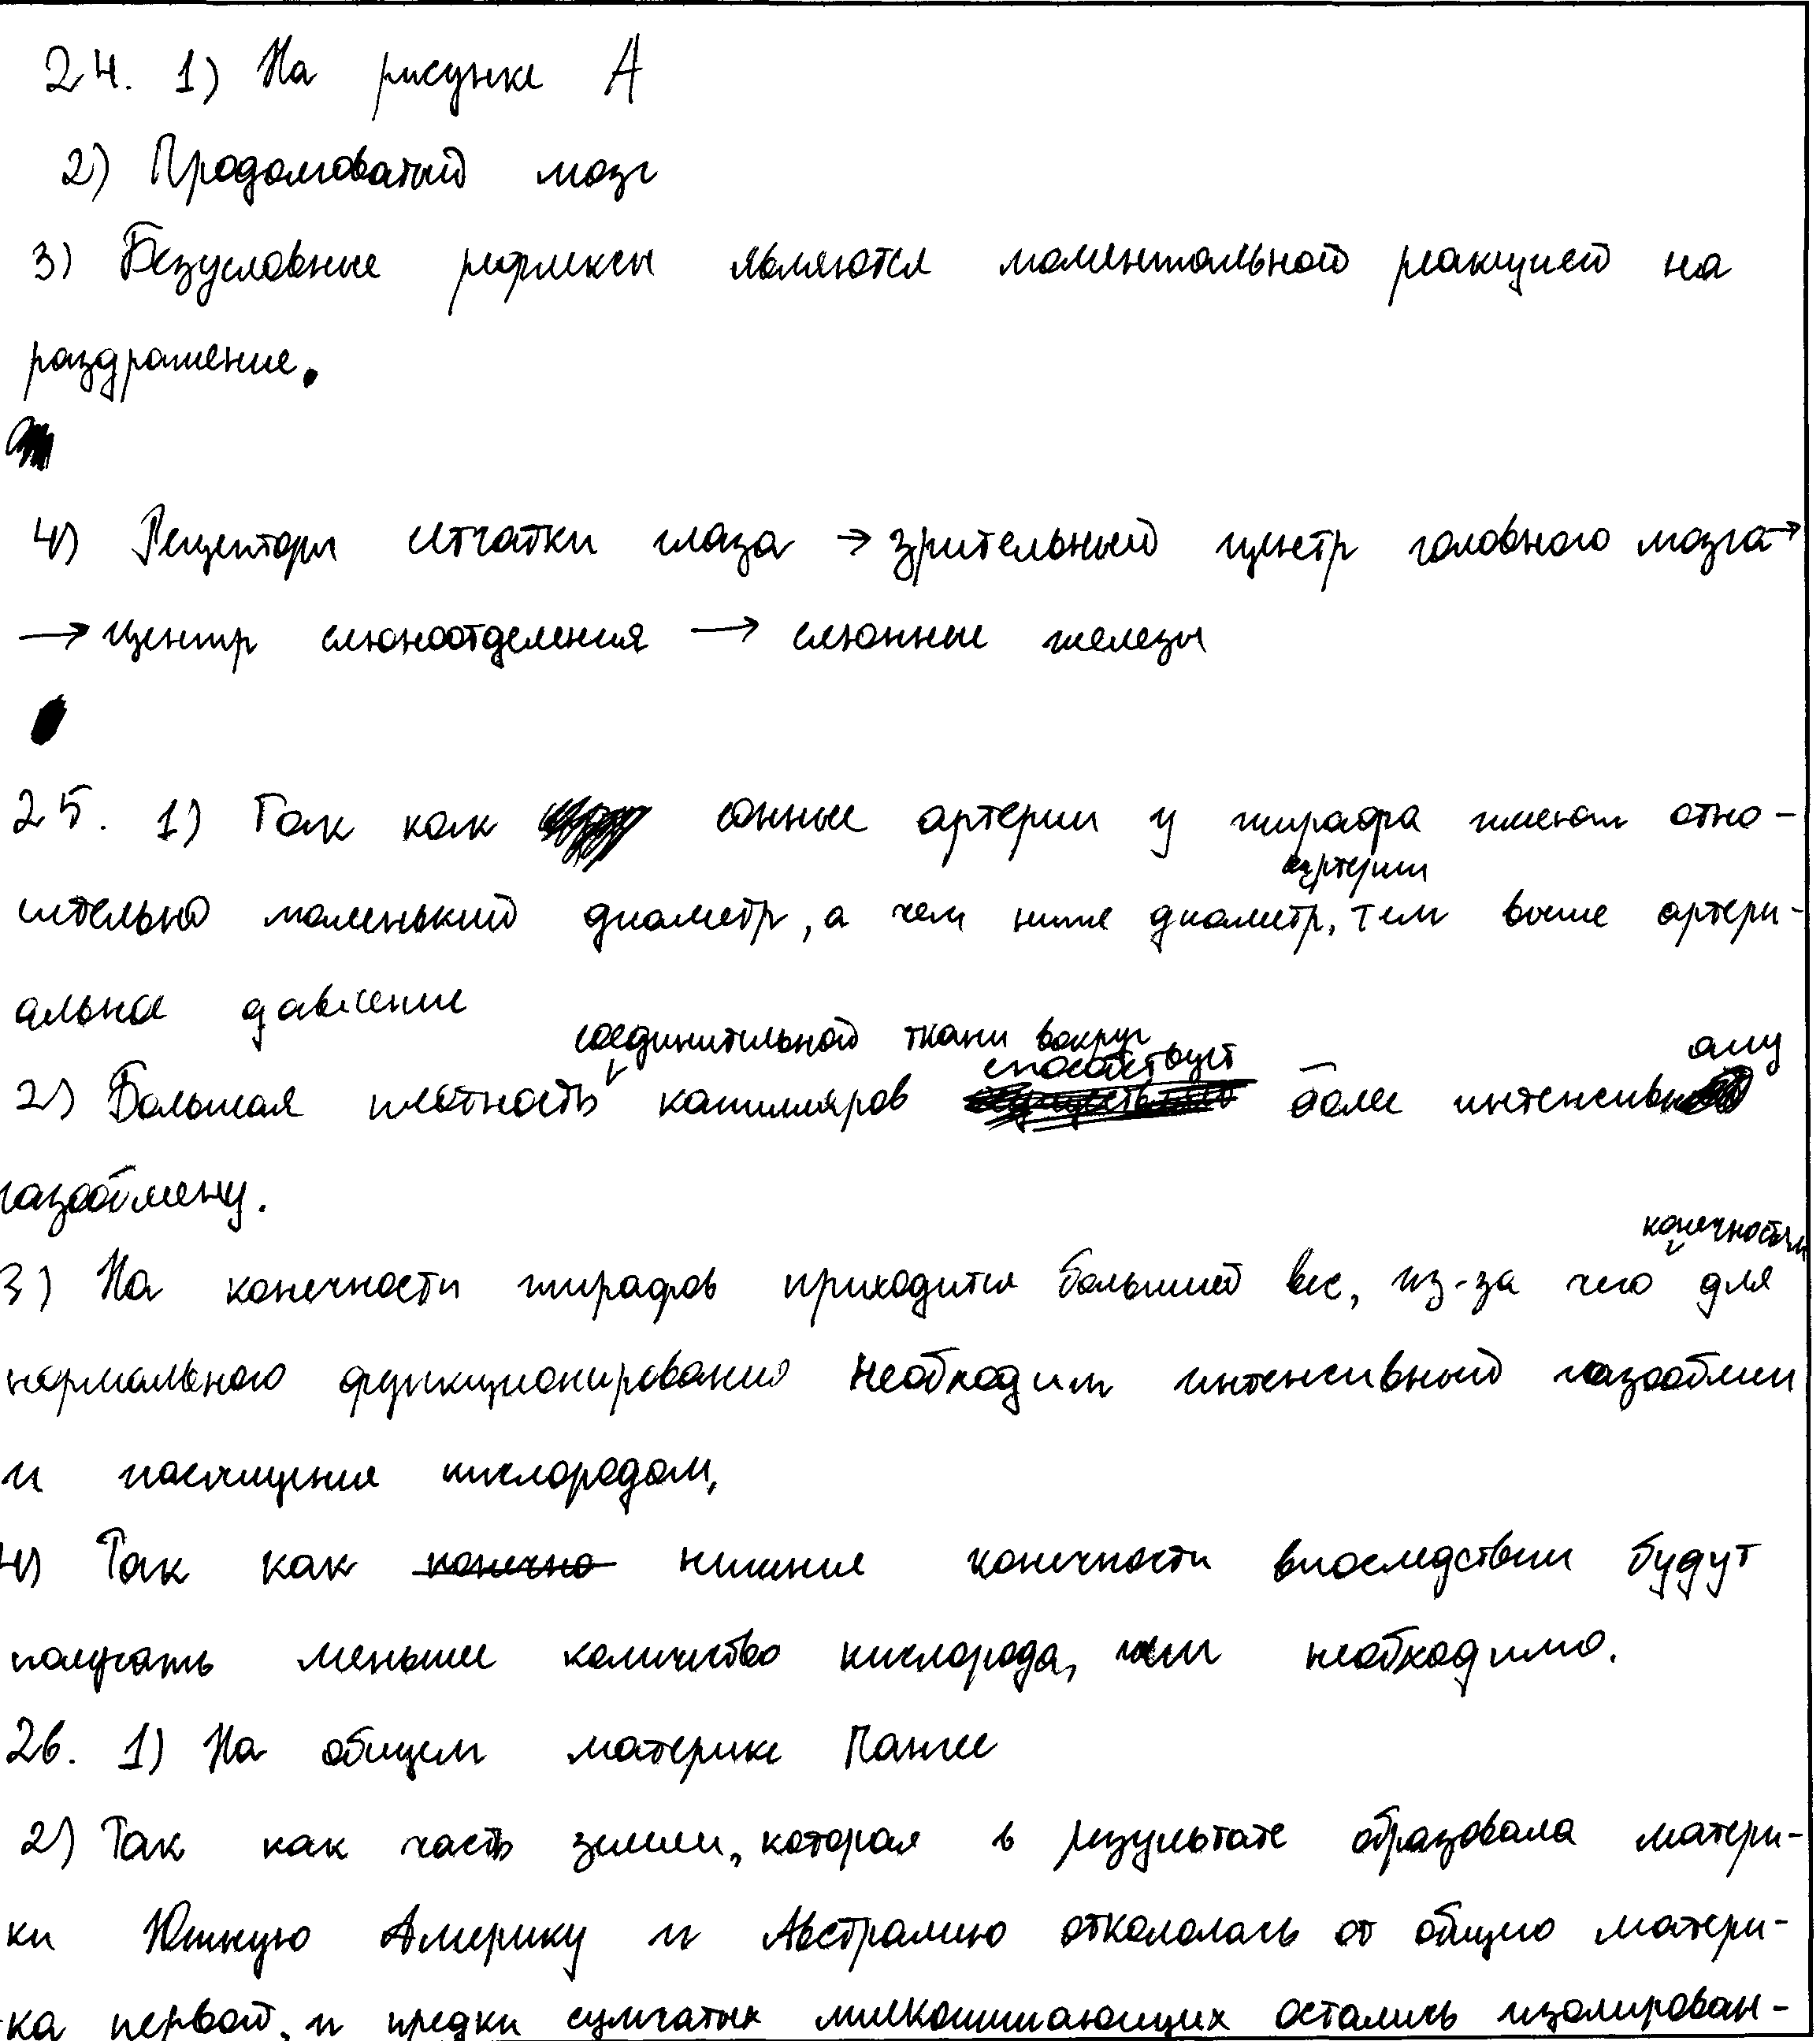 24. 1) На рисунке А
2) Продолговатый мозг
3) Безусловные рефлексы являются моментальной реакцией на
раздражение.
4) Рецепторы сетчатки глаза → зрительный центр головного мозга →
→ центр слюноотделения → слюнные железы
25. 1) Так как сонные артерии у жирафа имеют отно-
сительно маленький диаметр, а чем ниже диаметр артерии, тем выше артери-
альное давление
2) Большая плотность соединительной ткани вокруг капилляров способствует более интенсивному
газообмену.
3) На конечности жирафов приходится больший вес, из-за чего конечностям для
нормального функционирования необходим интенсивный газообмен
и насыщение кислородом,
4) Так как конечно нижние конечности впоследствии будут
получать меньшее количество кислорода, чем необходимо.
26. 1) На общем материке Пангее
2) Так как часть земли, которая в результате образовала матери-
ки Южную Америку и Австралию откололась от общего матери-
ка первой, и предки сумчатых млекопитающих остались изолирован-